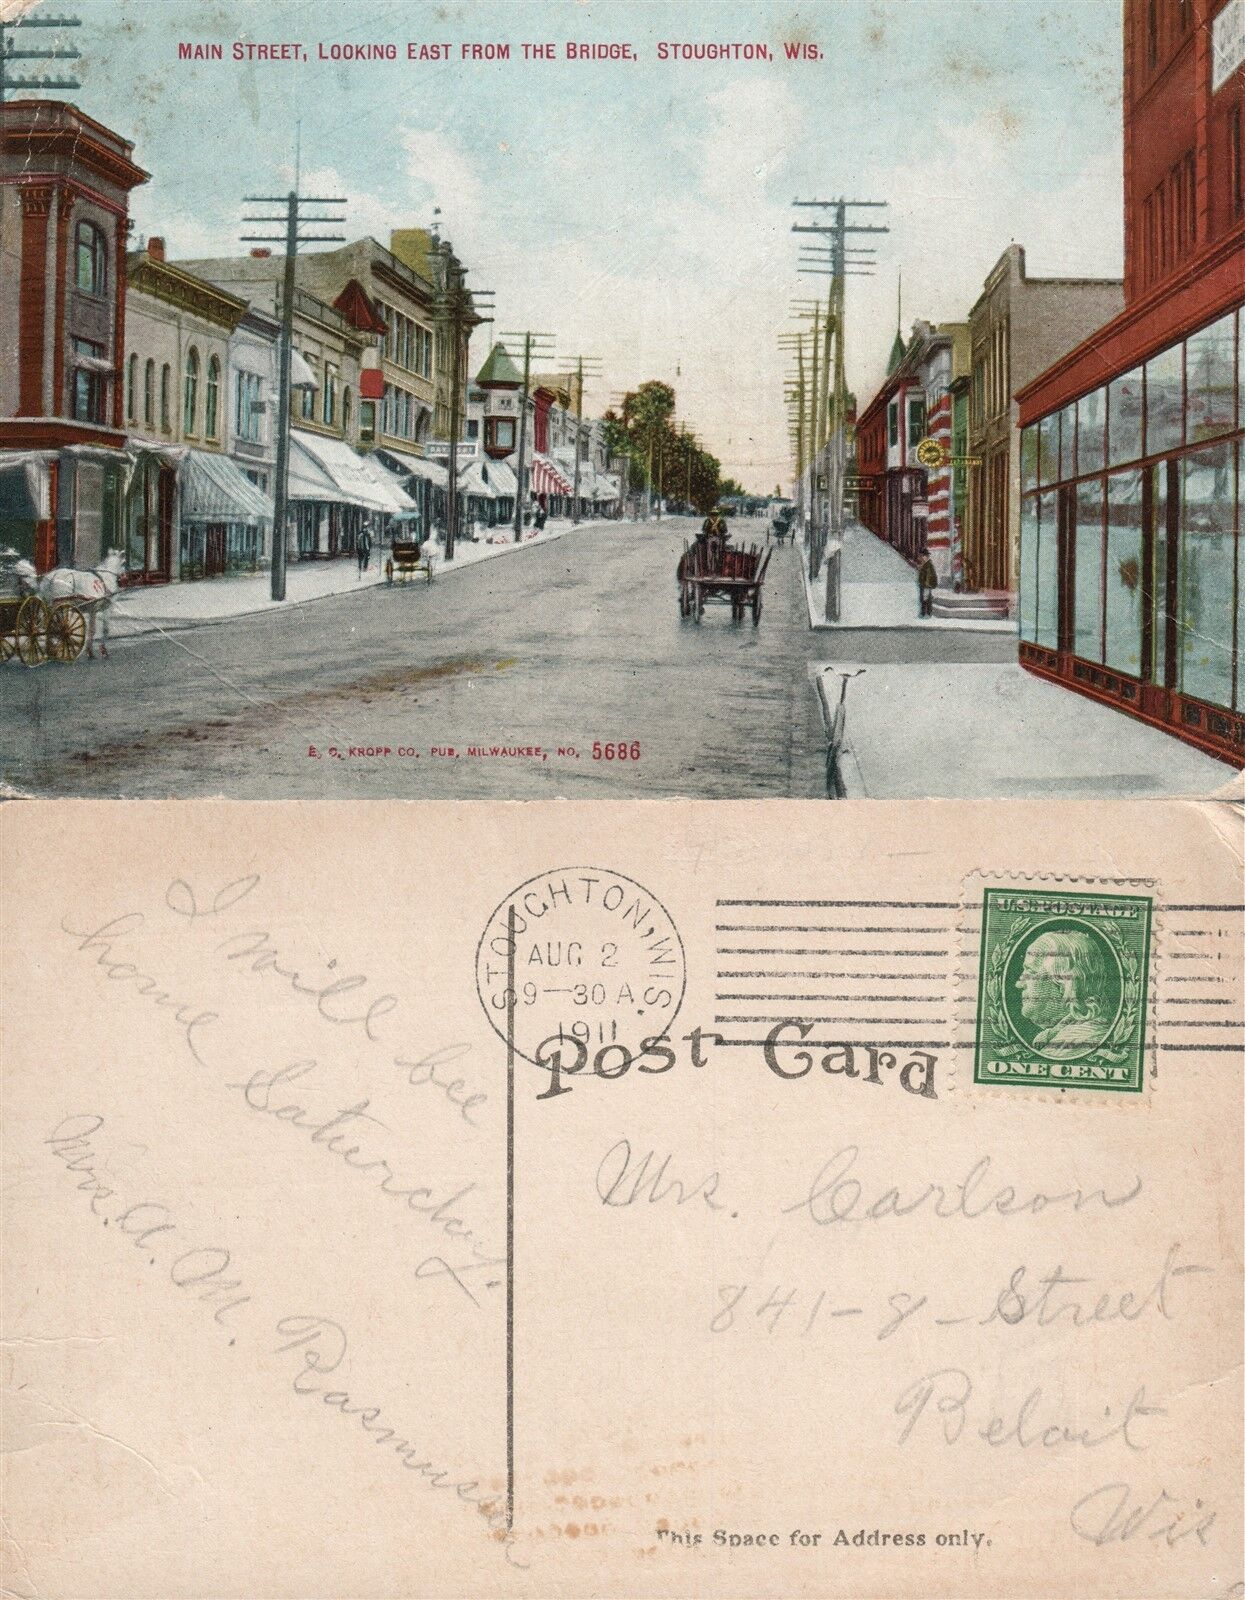 MAIN STREET, LOOKING EAST FROM THE BRIDGE, STOUGHTON, WIS.
E. C. KROPP CO. PUB. MILWAUKEE, NO. 5686
I will bee
home Saturday.
Mrs. A. M. Rasmussen
STOUGHTON, WIS.
AUG 2
9-30 A
1911
U.S. POSTAGE
ONE CENT
Post Card
Mrs. Carlson
841-8-Street
Beloit
Wis
This Space for Address only.